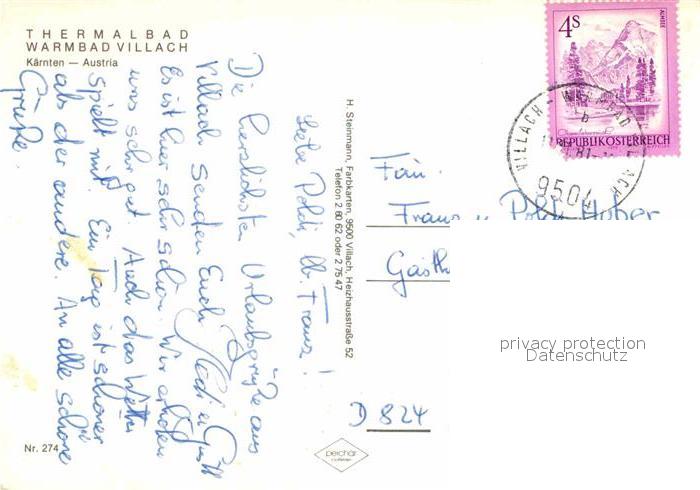 THERMALBAD
WARMBAD VILLACH
Kärnten — Austria
Liebe Poldi, lb. Franz!
Die herzlichsten Urlaubsgrüße aus
Villach senden Euch Hedi u. Gustl
Es ist hier sehr schön. Wir erholen
uns sehr gut. Auch das Wetter
spielt mit. Ein Tag ist schöner
als der andere. An alle schöne
Grüße.
Nr. 274
H. Steinmann, Farbkarten, 9500 Villach, Heizhausstraße 52
Telefon 2 80 62 oder 2 75 47
4S
ALMSEE
REPUBLIK ÖSTERREICH
VILLACH - WARMBAD VILLACH
b
9504
Fam.
Franz u. Poldi Huber
Gasth
privacy protection
Datenschutz
D 824